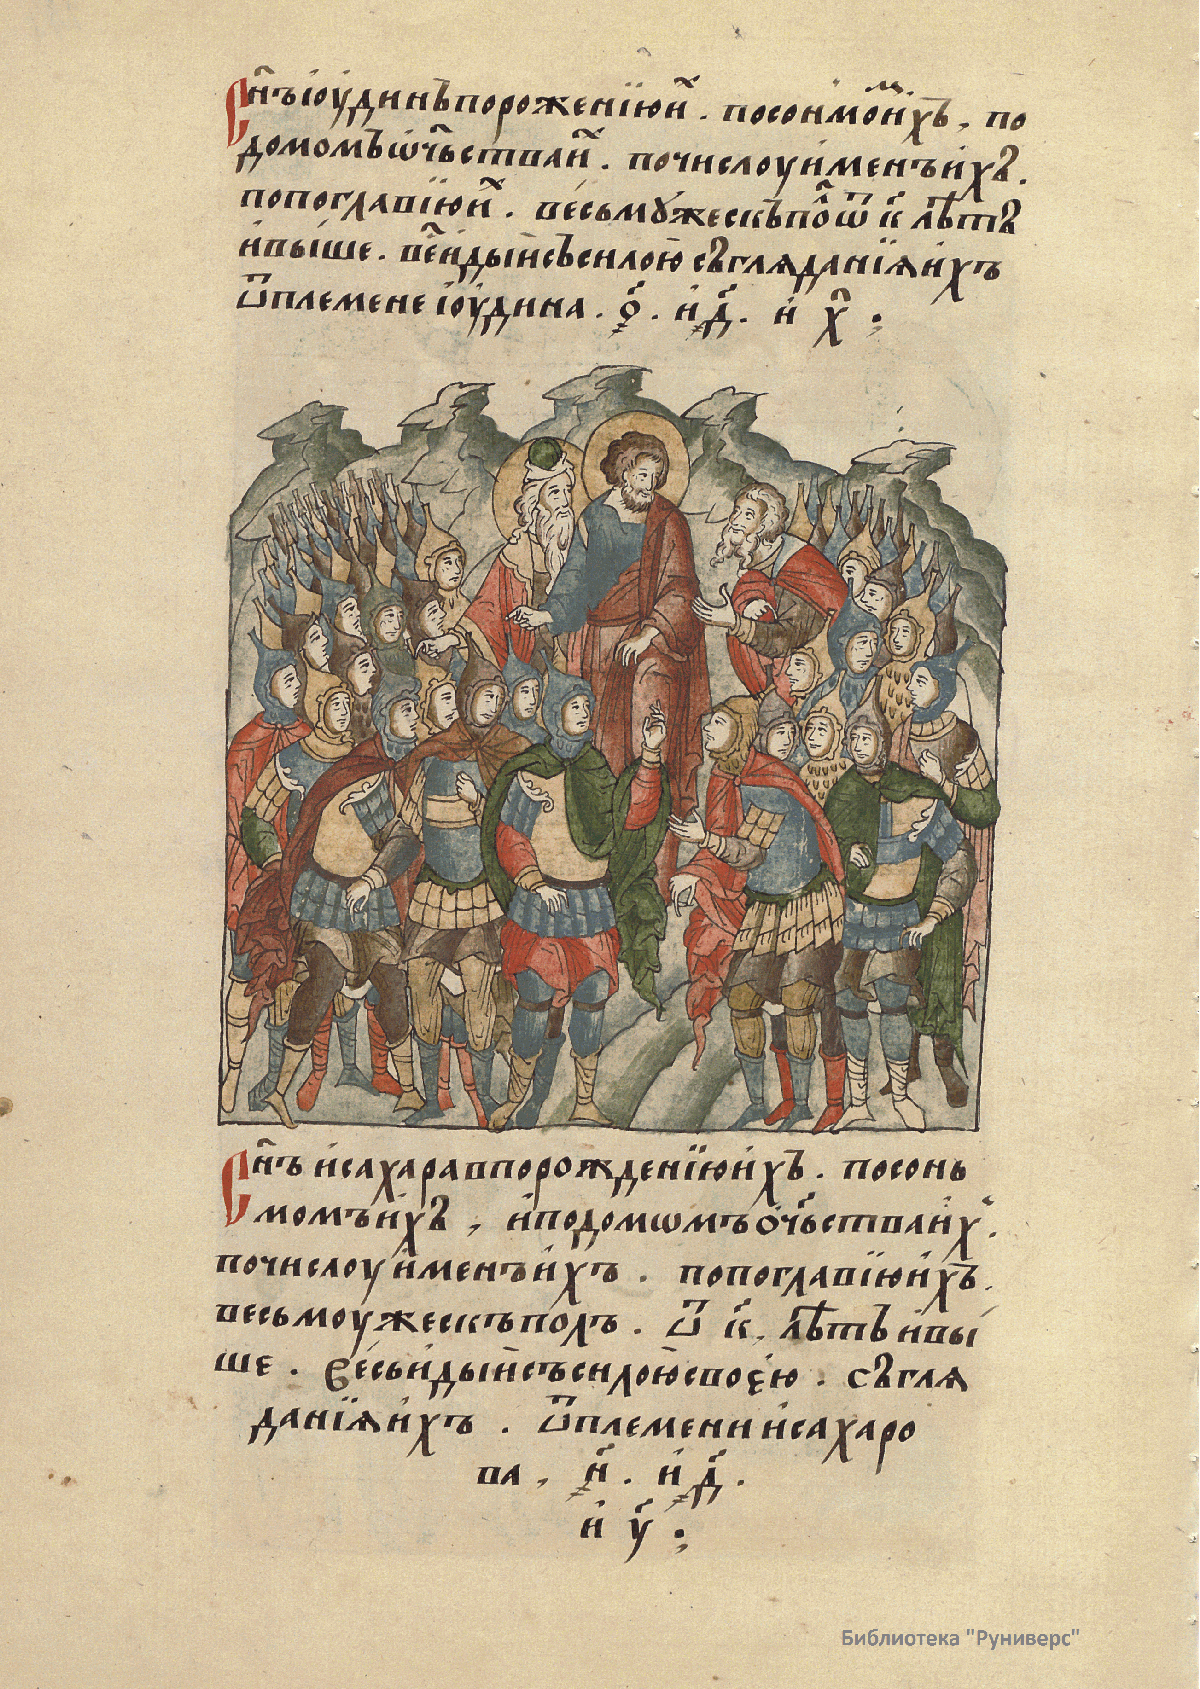 Сн҃ъ їоудинъ порожені́ю и҆х . посонмомⷨ и҆́хъ , по
домомъ ѡч҃ьства и҆х . почислоу и҆менъ и҆хъ .
попоглавїю и҆х . весь мꙋжескъ по́л ѿ к҃ лѣтъ
и҆вы́ше . ве́с и҆ды́и съсилою съглѧданїѧ и҆хъ
ѿ племене їоудина . ҂о҃ . и҆ ҂д҃ . и҆ х҃ :
Сн҃ъ и҆сахара в порожденїю и҆хъ . посонь
момъ и҆хъ , и҆ подомѡмъ ѻч҃ьства и҆х .
по числоу и҆менъ и҆хъ . попоглавїю и҆хъ .
весь моужескъ полъ . ѿ к҃ , лѣтъ и҆ вы
ше . Весь и҆ды́и съ силою своею . съглѧ
данїѧ и҆хъ . ѿ племени и҆сахаро
ва , ҂н҃ . и҆ ҂д҃ .
и҆ у҃ :
Библиотека "Руниверс"